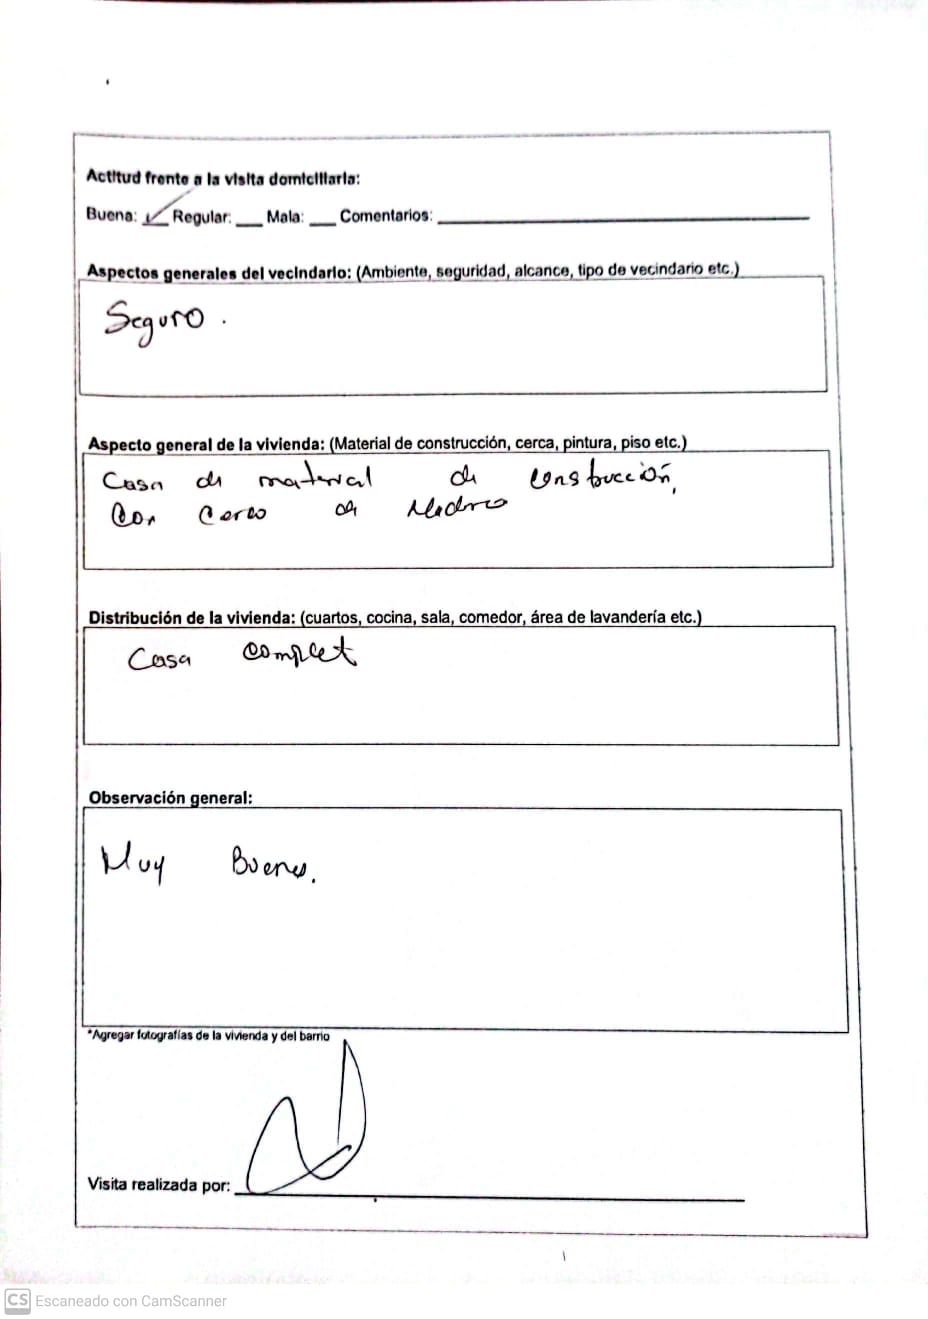 Actitud frente a la visita domiciliaria:
Buena: ✓ Regular: ___ Mala: ___ Comentarios: ___
Aspectos generales del vecindario: (Ambiente, seguridad, alcance, tipo de vecindario etc.)
Seguro.
Aspecto general de la vivienda: (Material de construcción, cerca, pintura, piso etc.)
Casa de material de construcción,
Con cerco de Madera
Distribución de la vivienda: (cuartos, cocina, sala, comedor, área de lavandería etc.)
Casa complet
Observación general:
Muy Buena.
*Agregar fotografías de la vivienda y del barrio
Visita realizada por:
CS Escaneado con CamScanner